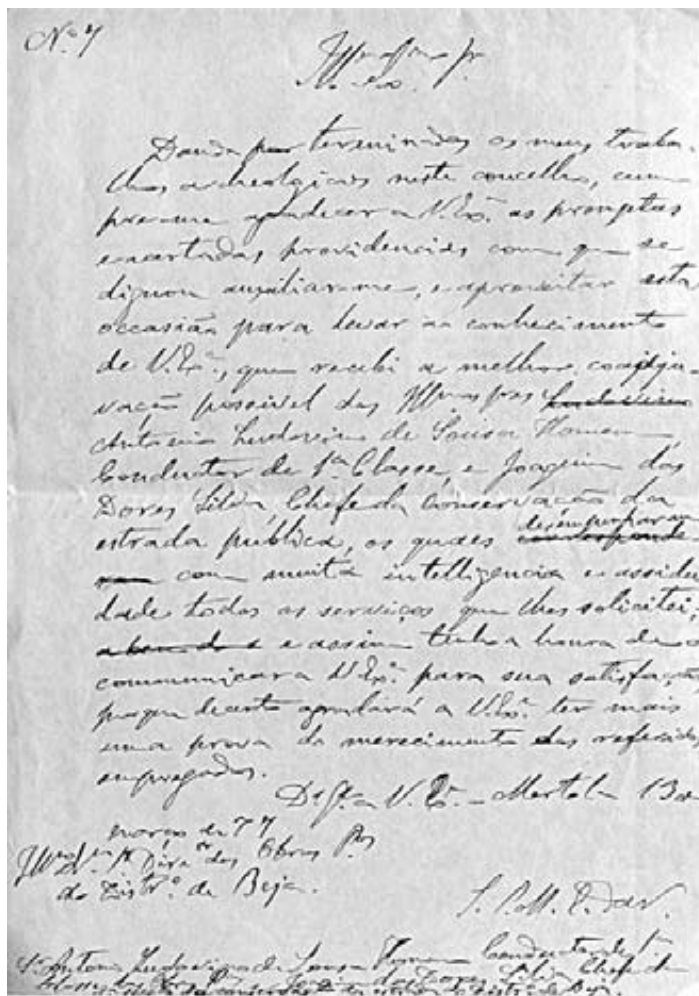 Nº 7
Illmo Exmo Sr.
Dando por terminados os meus traba-
lhos archeologicos neste concelho, cum
pre-me agradecer a V. Exª as promptas
e acertadas providencias com que se
dignou auxiliar-me, e aproveitar esta
occasião para levar ao conhecimento
de V. Exª, que recebi a melhor coadju-
vação possivel dos Illmos Srs Ludovino
Antonio Ludovino de Sousa Homem
Conductor de 1ª Classe, e Joaquim das
Dores Silva, Chefe da conservação da
estrada pública, os quaes desempenharam
com muita intelligencia e assidui
dade todos os serviços que lhes solicitei,
e assim tenho a honra de o
communicar a V. Exª para sua satisfação
porque decerto agradará a V. Exª ter mais
uma prova do merecimento dos referidos
empregados.
Ds Gde a V. Exª – Mertola 13 de
março de 77
Illmo Exmo Sr Dirºr das Obras Pas
do Distrº de Beja.
S. P. M. E. da V.
Sr Antonio Ludovino de Sousa Homem Conductor de 1ª
Joaquim das Dores Silva Chefe de
conservação da estrada do districto de Beja.